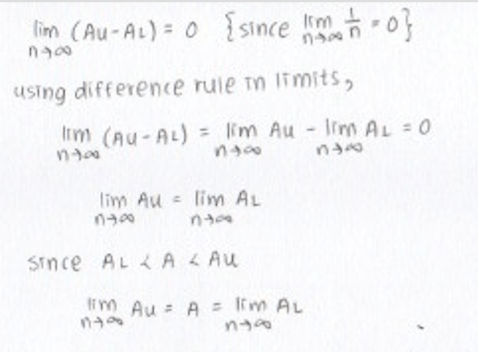 lim (Au-AL) = 0 {since lim 1/n = 0}
n→∞ n→∞
using difference rule in limits,
lim (Au-AL) = lim Au - lim AL = 0
n→∞ n→∞ n→∞
lim Au = lim AL
n→∞ n→∞
since AL < A < Au
lim Au = A = lim AL
n→∞ n→∞